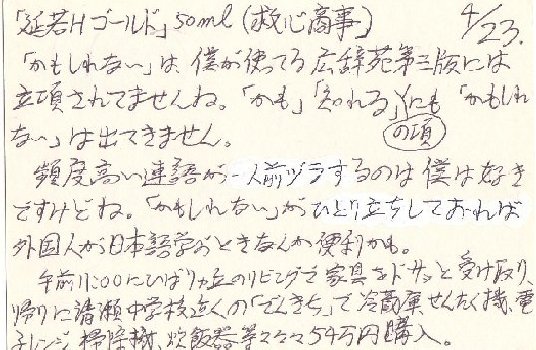 「延若Hゴールド」50ml (救心商事) 4/23.
「かもしれない」は、僕が使ってる広辞苑第三版には
立項されてませんね。「かも」「知れる」にも「かもしれ
の項
ない」は出てきません。
頻度高い連語が一人前ヅラするのは僕は好き
ですけどね。「かもしれない」がひとり立ちしておれば
外国人が日本語学ぶときなんか便利かも。
午前11:00にひばりヶ丘のリビングで家具をドサッと受け取り、
帰りに清瀬中学校近くの「でんきち」で冷蔵庫せんたく機、電
子レンジ、掃除機、炊飯器等々々54万円購入。